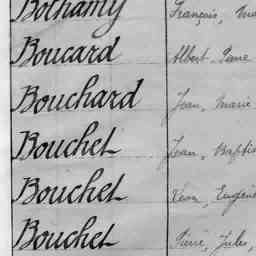 Bothamy François,
Boucard Albert
Bouchard Jean, Marie
Bouchet Jean, Baptis
Bouchet Eugène
Bouchet Pierre, Jules,